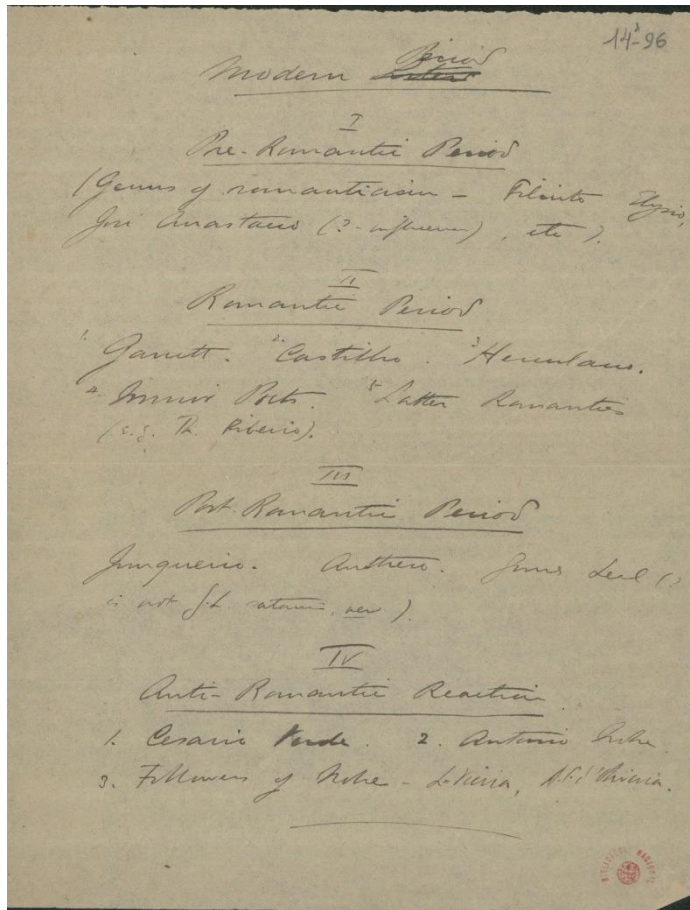 14³-96
Modern Period
I
Pre-Romantic Period
(Germs of romanticism – Filinto Elysio,
José Anastacio (? influence), etc).
II
Romantic Period
1. Garrett. 2. Castilho. 3. Herculano.
4. Minor Poets. 5. Latter Romantics
(e.g. Th. Ribeiro).
III
Post-Romantic Period
Junqueiro. Anthero. Gomes Leal (?
is not G.L. satanic,
IV
Anti-Romantic Reaction
1. Cesario Verde. 2. Antonio Nobre
3. Followers of Nobre – L. Vieira, A.F. d'Oliveira.
BIBLIOTECA NACIONAL